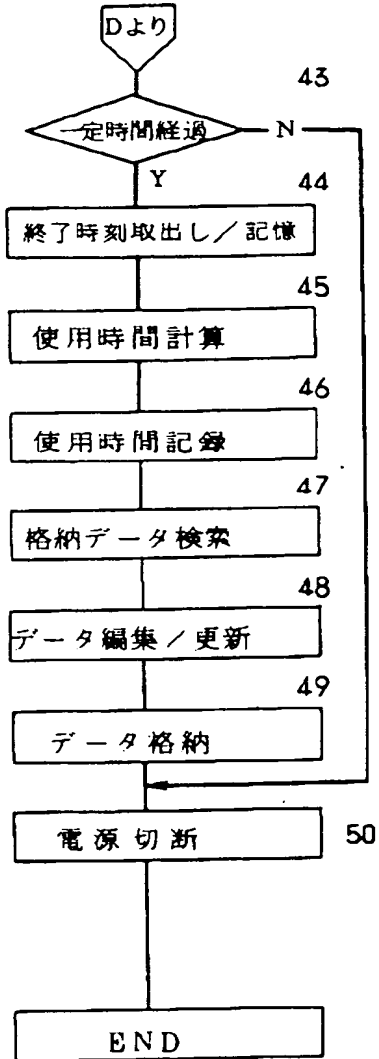 Dより
43
一定時間経過
N
Y
44
終了時刻取出し／記憶
45
使用時間計算
46
使用時間記録
47
格納データ検索
48
データ編集／更新
49
データ格納
電源切断
50
END